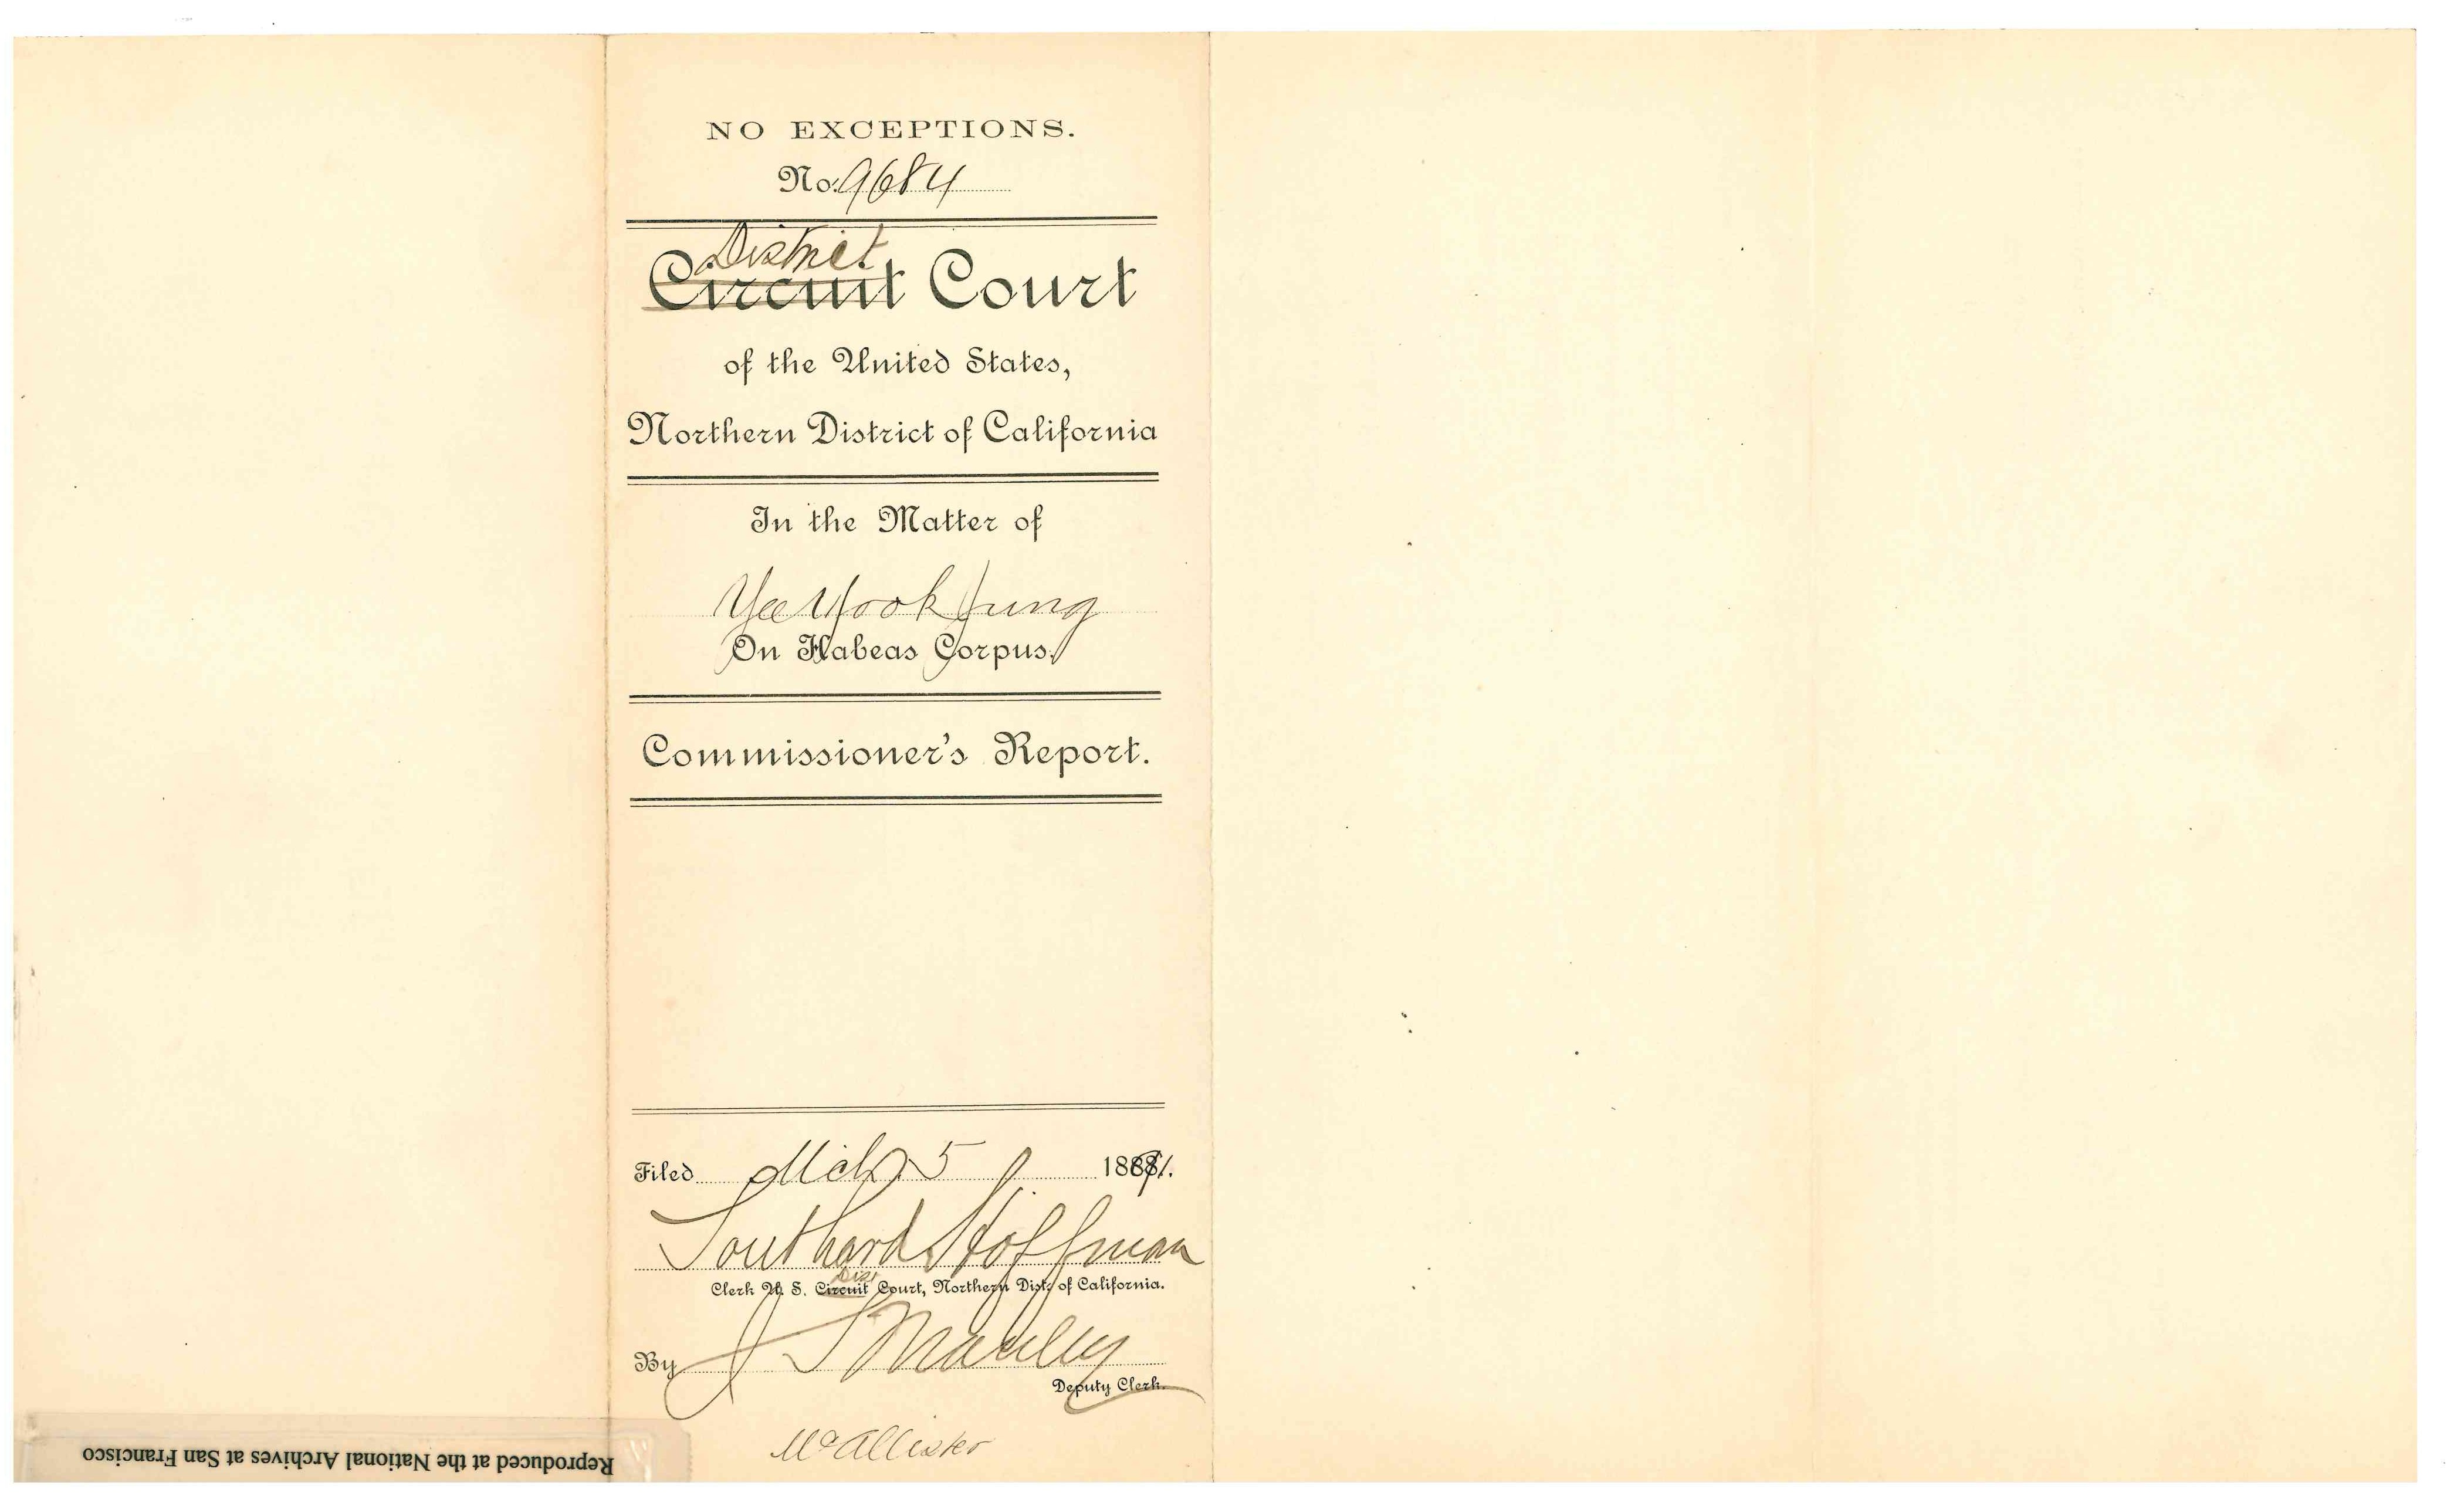 NO EXCEPTIONS.
No. 9684
District
Circuit Court
of the United States,
Northern District of California
In the Matter of
Yee Yook Jung
On Habeas Corpus.
Commissioner's Report.
Filed Mch 5 1891.
Southard Hoffman
Dist
Clerk U. S. Circuit Court, Northern Dist. of California.
By J S Manley
Deputy Clerk.
McAllister
Reproduced at the National Archives at San Francisco